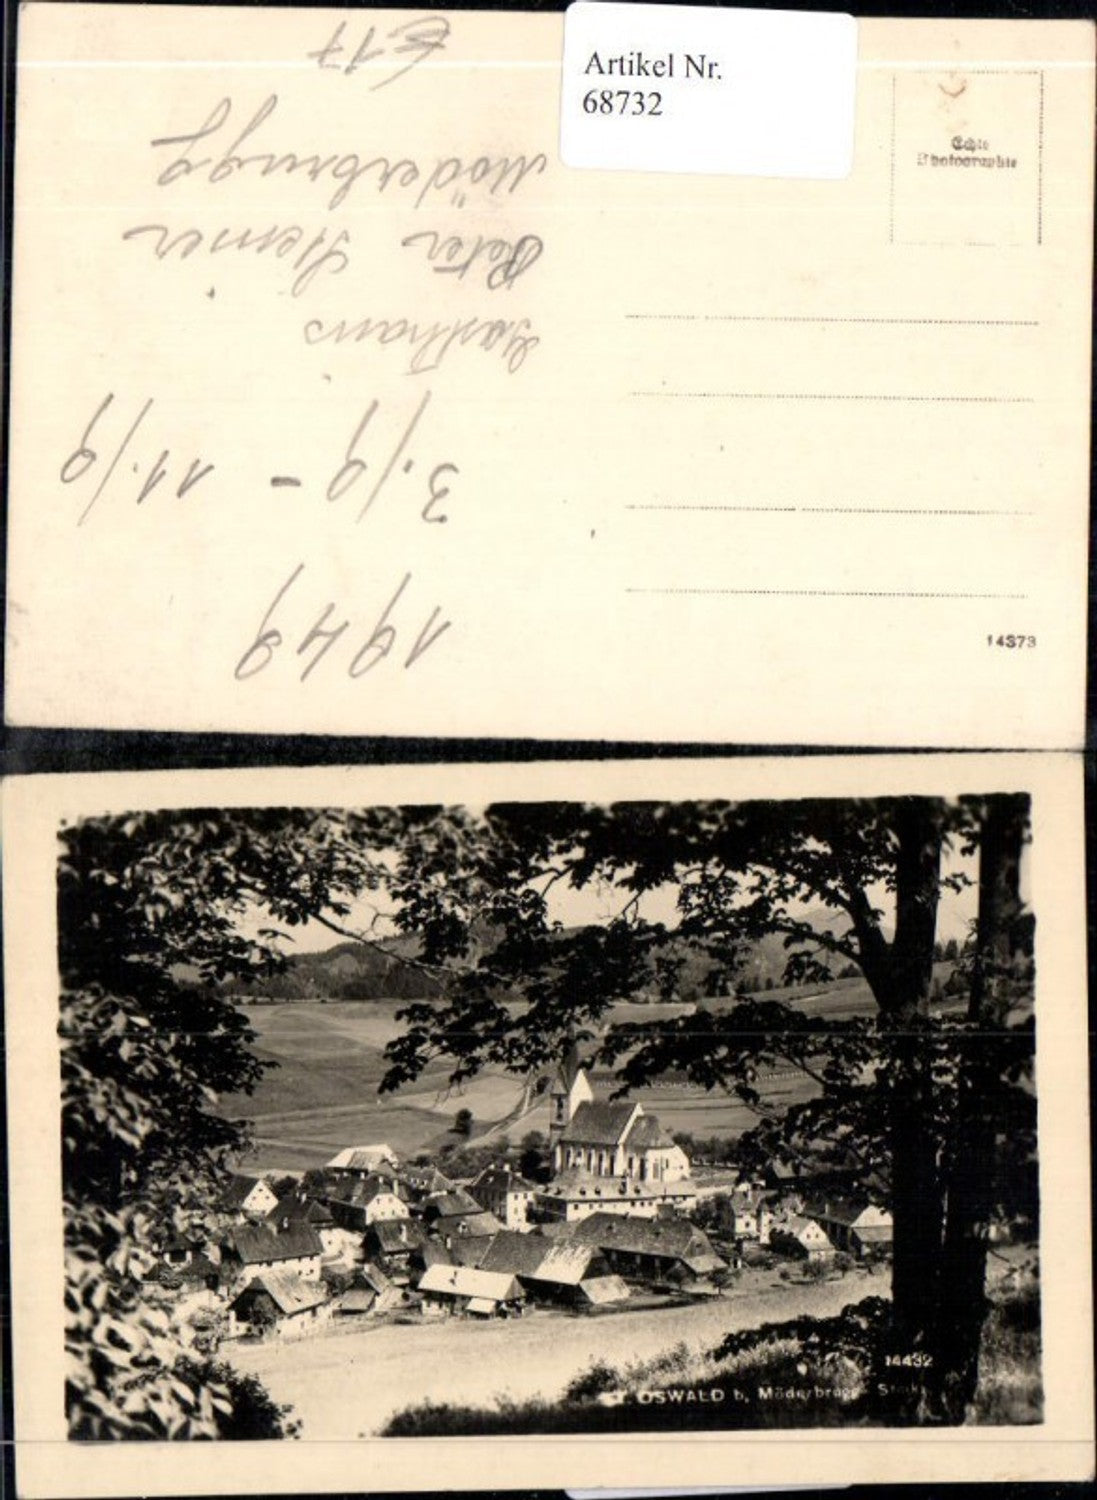 Artikel Nr.
68732
Echte
Photographie
14373
1949
3./9 - 11./9
Gasthaus
Peter Steiner
Möderbrugg
E 17
14432
ST. OSWALD b. Möderbrugg Stmk.